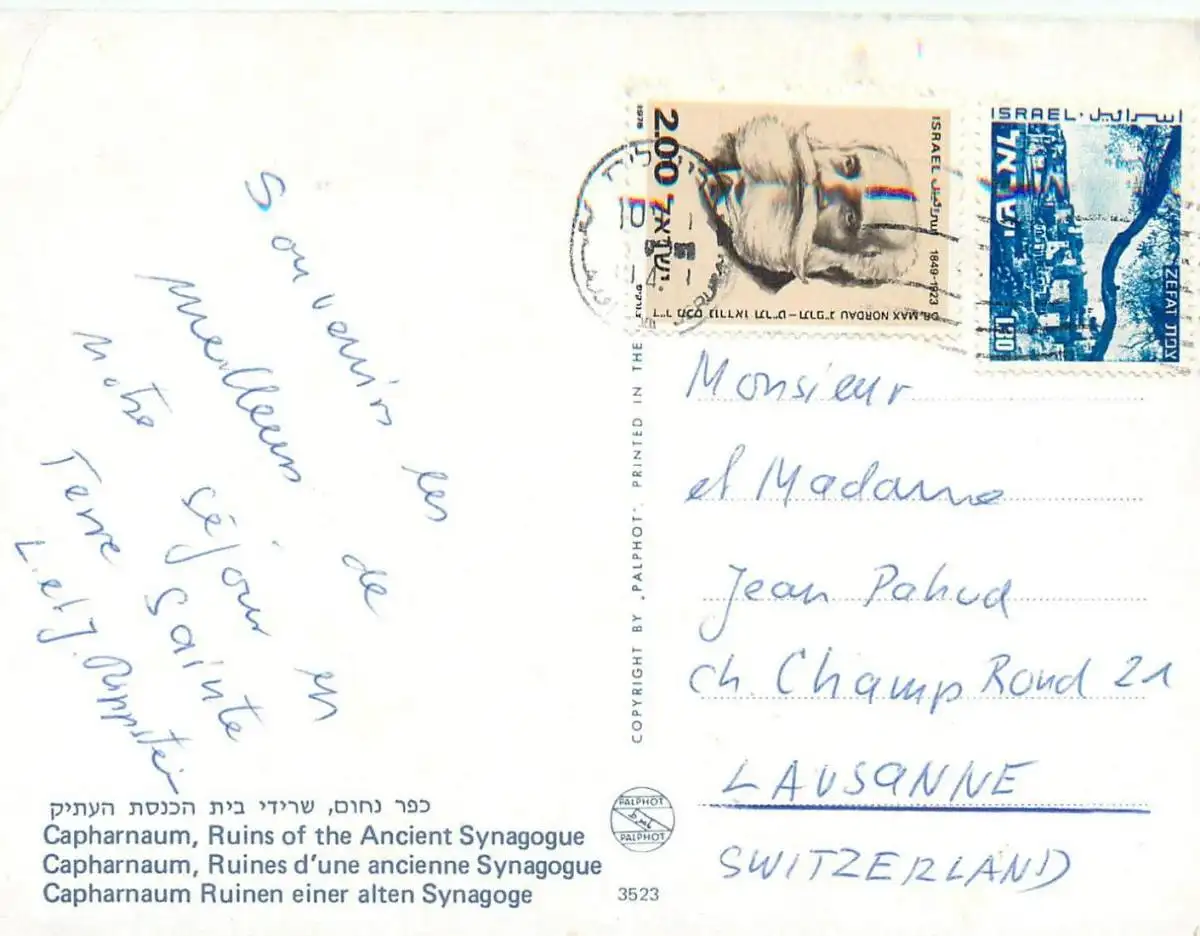 Souvenirs les
meilleurs de
notre séjour en
Terre Sainte
L. et J. Rippstein
כפר נחום, שרידי בית הכנסת העתיק
Capharnaum, Ruins of the Ancient Synagogue
Capharnaum, Ruines d'une ancienne Synagogue
Capharnaum Ruinen einer alten Synagoge
COPYRIGHT BY „PALPHOT". PRINTED IN THE
PALPHOT
PALPHOT
3523
1978
2.00 ישראל
ISRAEL اسرائيل 1849-1923
DR. MAX NORDAU ד"ר מכס נורדאו תר"ט - תרפ"ג
ISRAEL · اسرائيل
ישראל
1.30
ZEFAT צפת
10
4
Monsieur
et Madame
Jean Pahud
ch. Champ Rond 21
LAUSANNE
SWITZERLAND